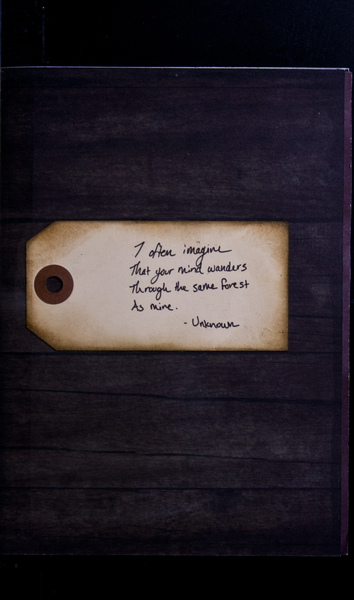 I often imagine
That your mind wanders
Through the same forest
As mine.
- Unknown